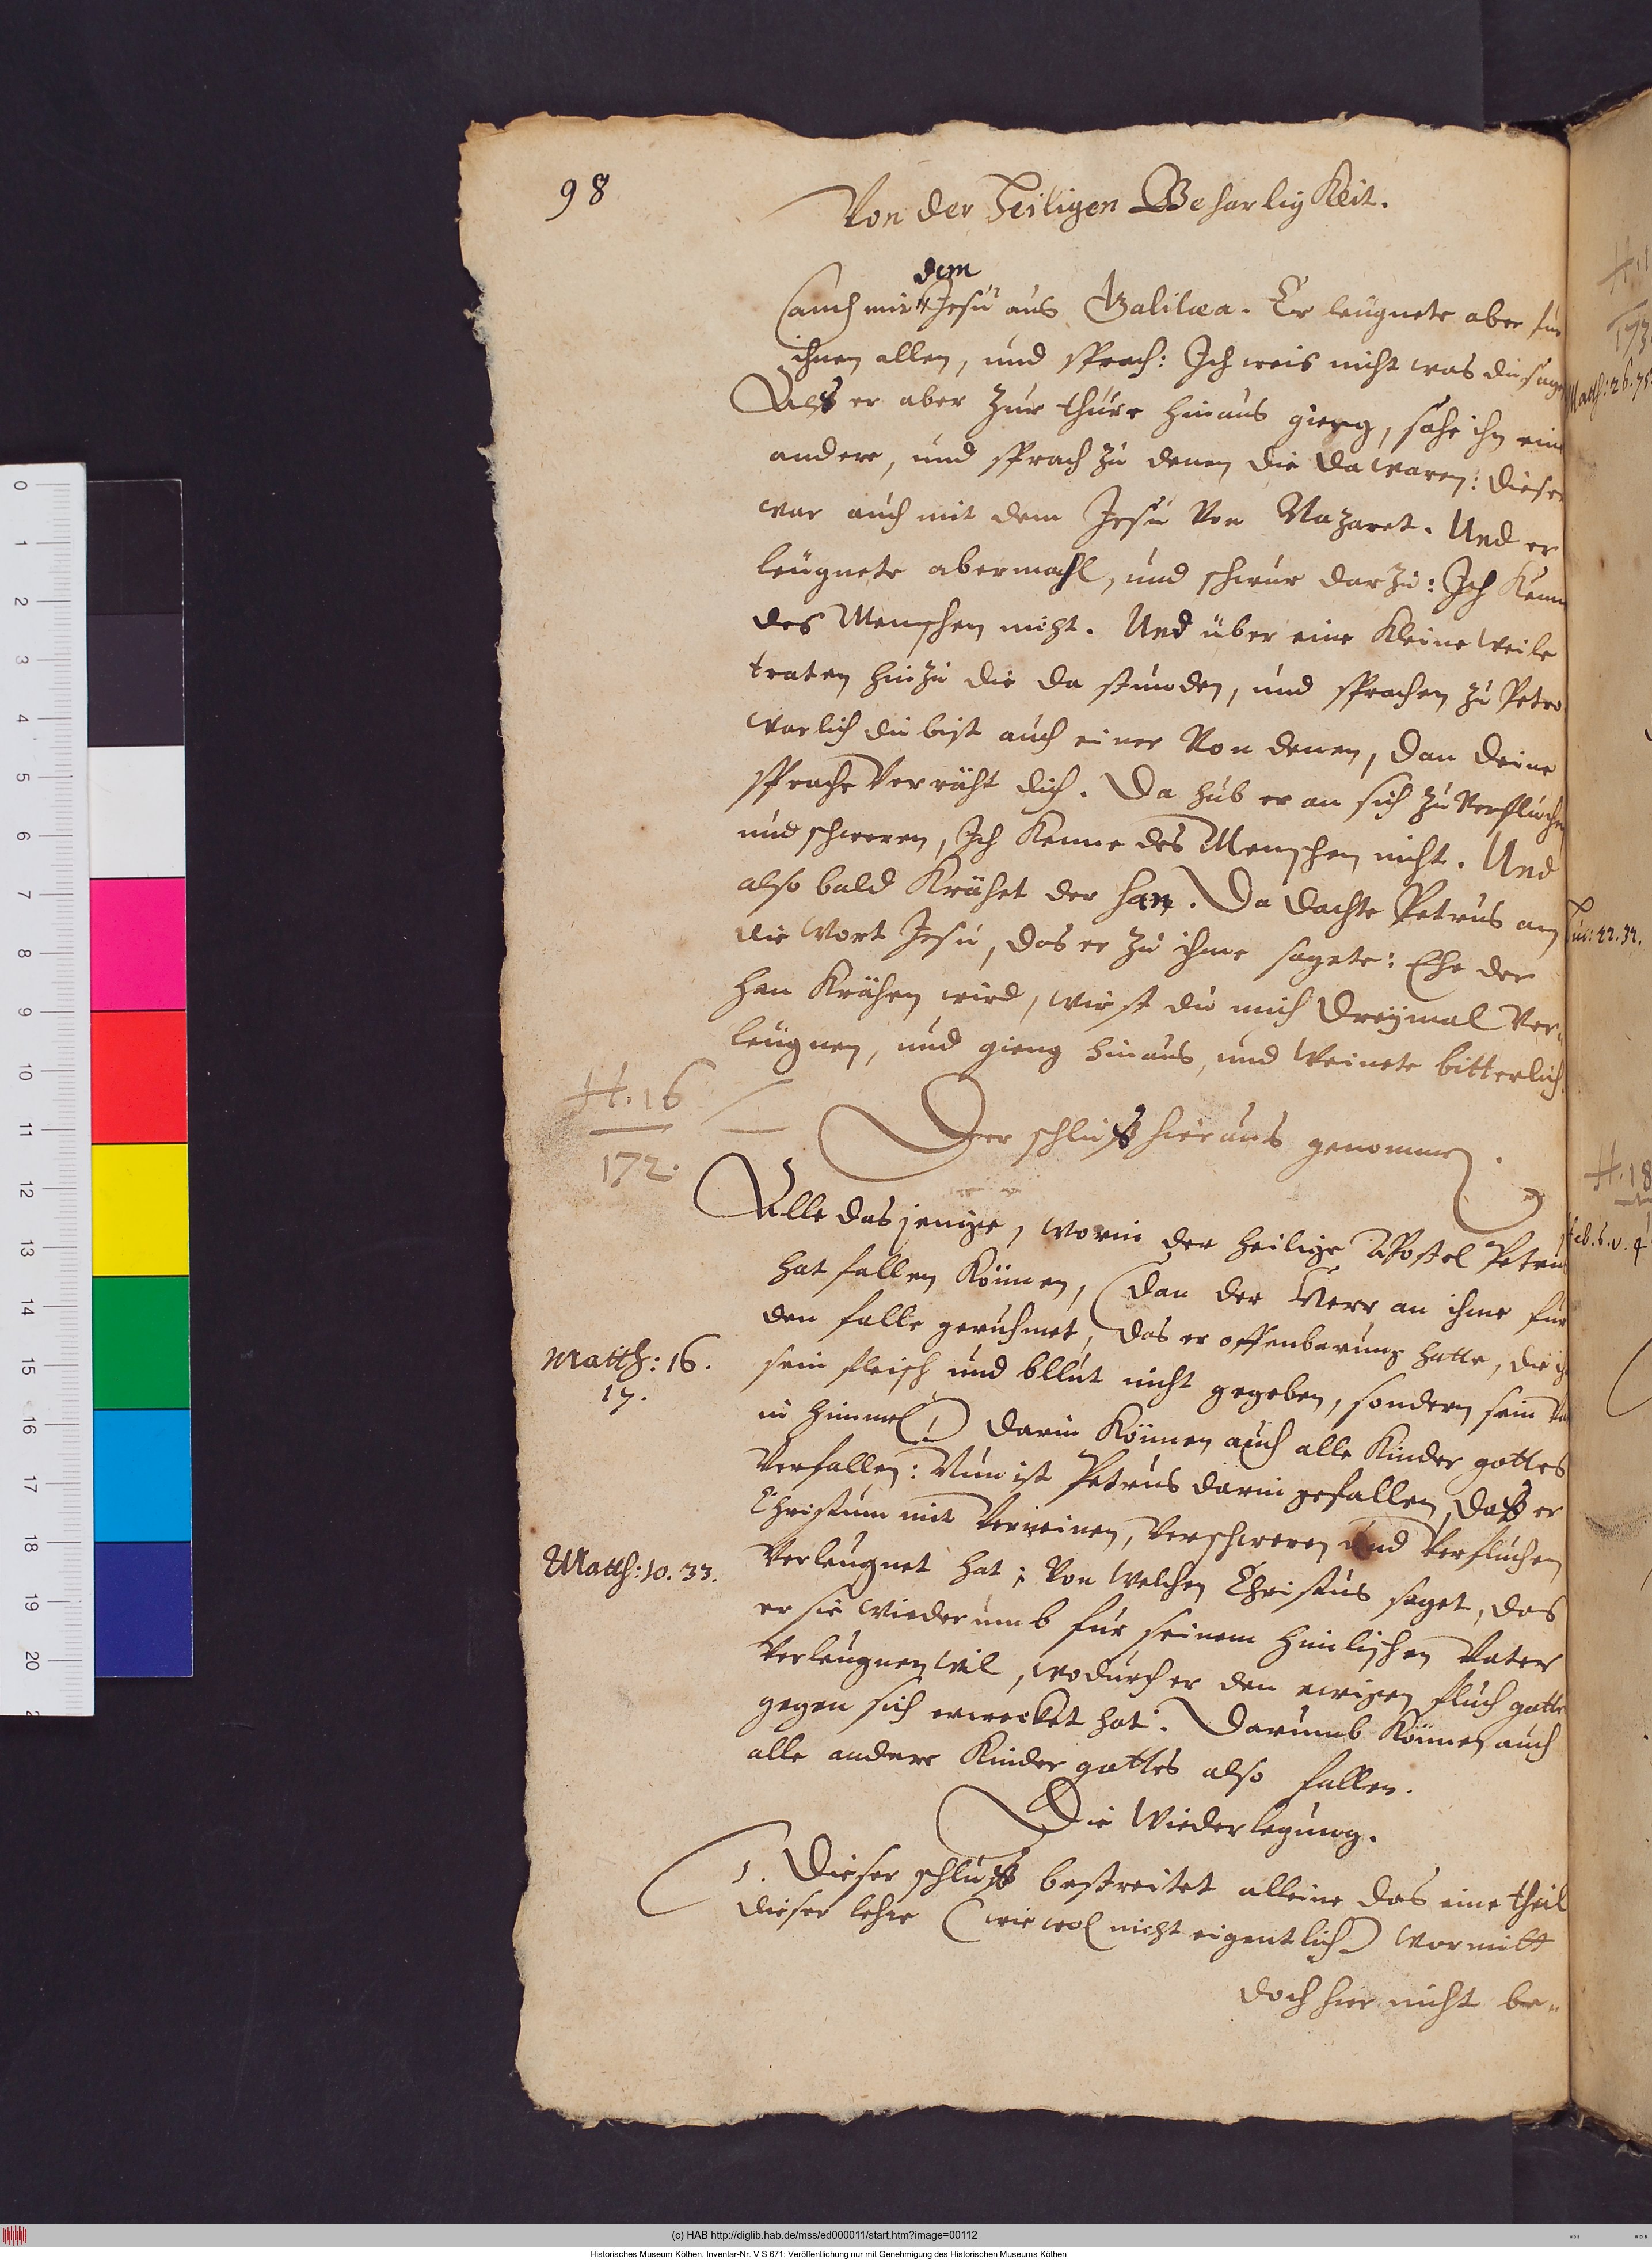 98
Von der Heiligen BeharligKeit.
dem
auch mit Jesu aus Galilæa. Er leugnete aber für
ihnen allen, und sprach: Ich weis nicht was du sage
Alß er aber zur thure hinaus gieng, sahe ihn ein
andere, und sprach zu denen die da waren: dieser
war auch mit dem Jesu von Nazaret. Und er
leugnete abermahl, und schwur darzu: Ich Kenn
des Menschen nicht. Und über eine Kleine weile
traten hinzu die da stunden, und sprachen zu Petro
warlich du bist auch einer von denen, dan deine
sprache verräht dich. Da hub er an sich zu verfluchen
und schweren, Ich Kenne des Menschen nicht. Und
also bald Krähet der han. Da dachte Petrus an
die wort Jesu, das er zu ihme sagete: Ehe der
han Krähen wird, wirst du mich dreÿmal ver-
leugnen, und gieng hinaus, und weinete bitterlich
H. 16
172.
Der schluß hieraus genommen.
Alle dasjenige, worin der heilige Apostel Petrus
hat fallen Können, (dan der Herr an ihme für
den falle geruhmet, das er offenbarung hatte, die ih
Matth: 16.
17.
sein fleisch und bllut nicht gegeben, sondern sein va
in himmel) darin Können auch alle Kinder gottes
verfallen: Nun ist Petrus darin gefallen, daß er
Christum mit verneinen, verschweren und verfluchen
Matth: 10. 33.
verleugnet hat; von welchen Christus saget, das
er sie wiederumb für seinem himlischen vater
verleugnen wil, wodurch er den ewigen fluch gotte
gegen sich erwecket hat. Darumb Können auch
alle andere Kinder gottes also fallen.
Die Wiederlegung.
1. Dieser schluß bestreitet alleine das eine theil
dieser lehre (wie wol nicht eigentlich) wormitt
doch hier nicht be-
Matth: 26. 75
Luc: 22. 32.
H. 18
0 1 2 3 4 5 6 7 8 9 10 11 12 13 14 15 16 17 18 19 20
(c) HAB http://diglib.hab.de/mss/ed000011/start.htm?image=00112
Historisches Museum Köthen, Inventar-Nr. V S 671; Veröffentlichung nur mit Genehmigung des Historischen Museums Köthen